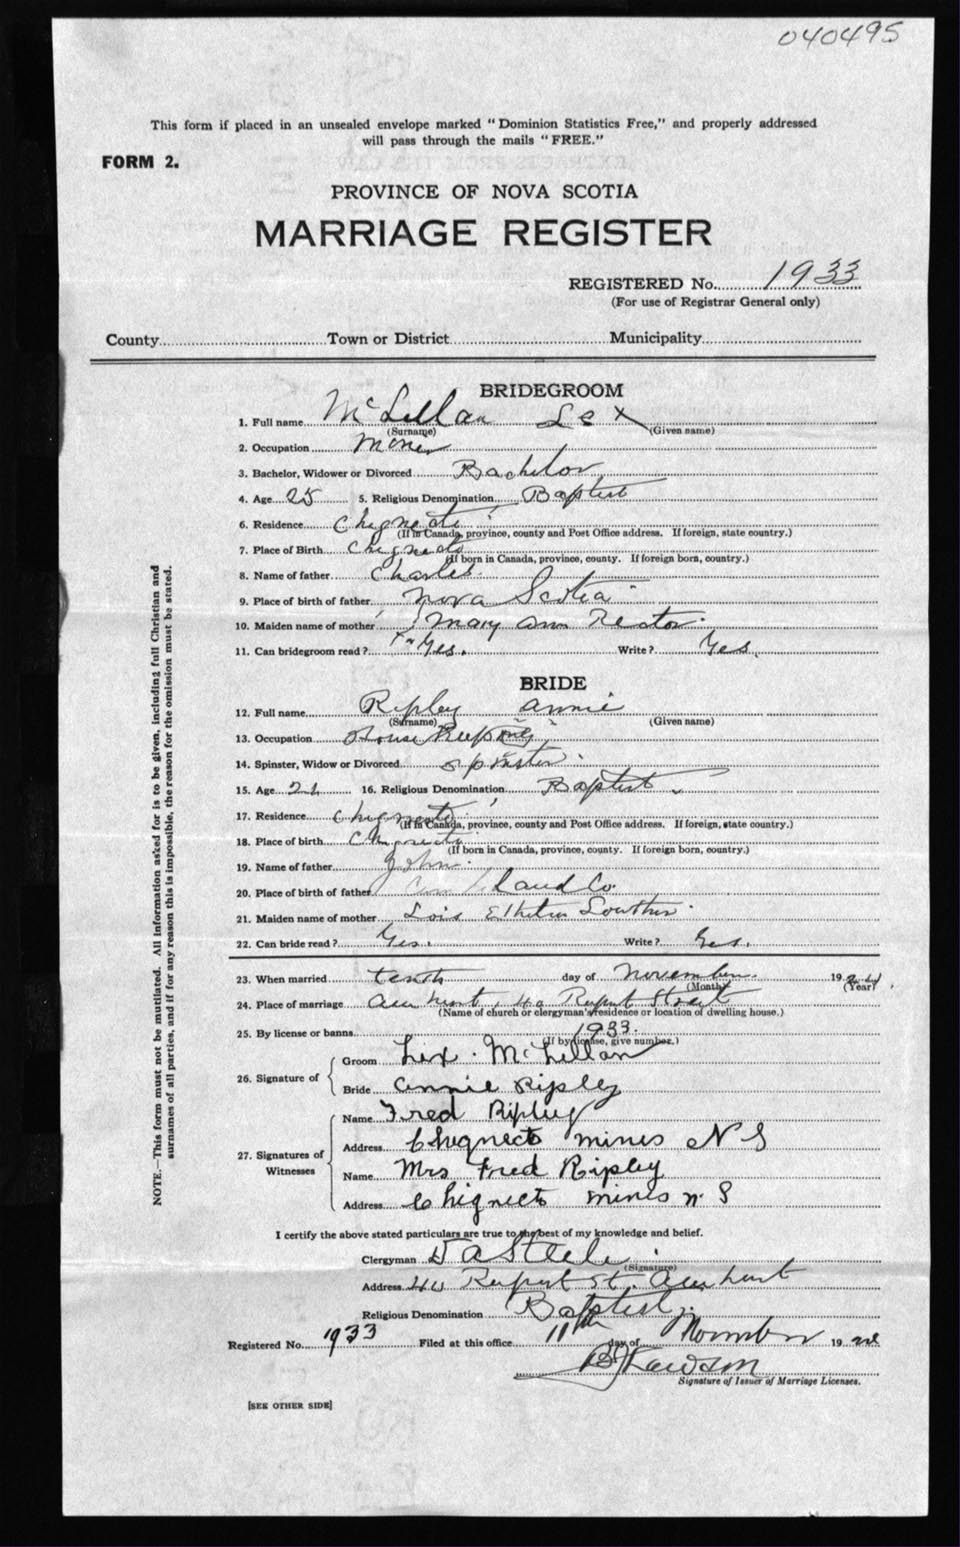 040495
This form if placed in an unsealed envelope marked "Dominion Statistics Free," and properly addressed
will pass through the mails "FREE."
FORM 2.
PROVINCE OF NOVA SCOTIA
MARRIAGE REGISTER
REGISTERED No. 1933
(For use of Registrar General only)
County Town or District Municipality
BRIDEGROOM
1. Full name McLellan Lex
(Surname) (Given name)
2. Occupation Miner
3. Bachelor, Widower or Divorced Bachelor
4. Age 25 5. Religious Denomination Baptist
6. Residence Chignecto
(If in Canada, province, county and Post Office address. If foreign, state country.)
7. Place of Birth Chignecto
(If born in Canada, province, county. If foreign born, country.)
8. Name of father Charles.
9. Place of birth of father Nova Scotia
10. Maiden name of mother Mary Ann
11. Can bridegroom read? Yes. Write? Yes.
BRIDE
12. Full name Ripley Annie
(Surname) (Given name)
13. Occupation House Keeping
14. Spinster, Widow or Divorced Spinster.
15. Age 16. Religious Denomination Baptist
17. Residence Chignecto
(If in Canada, province, county and Post Office address. If foreign, state country.)
18. Place of birth Chignecto
(If born in Canada, province, county. If foreign born, country.)
19. Name of father John.
20. Place of birth of father Cumberland Co.
21. Maiden name of mother Lois
22. Can bride read? Yes. Write? Yes.
23. When married tenth day of November 19
(Month) (Year)
24. Place of marriage Amherst, 40 Rupert Street
(Name of church or clergyman's residence or location of dwelling house.)
25. By license or banns 1933.
(If by license, give number.)
26. Signature of
Groom Lex. McLellan
Bride Annie Ripley
27. Signatures of Witnesses
Name Fred Ripley
Address Chignecto mines N S
Name Mrs Fred Ripley
Address Chignecto mines N. S
I certify the above stated particulars are true to the best of my knowledge and belief.
Clergyman D A Steele.
(Signature)
Address 40 Rupert St. Amherst
Religious Denomination Baptist
Registered No. 1933 Filed at this office 11th day of November 19
Signature of Issuer of Marriage Licenses.
[SEE OTHER SIDE]
NOTE.—This form must not be mutilated. All information asked for is to be given, including full Christian and
surnames of all parties, and if for any reason this is impossible, the reason for the omission must be stated.